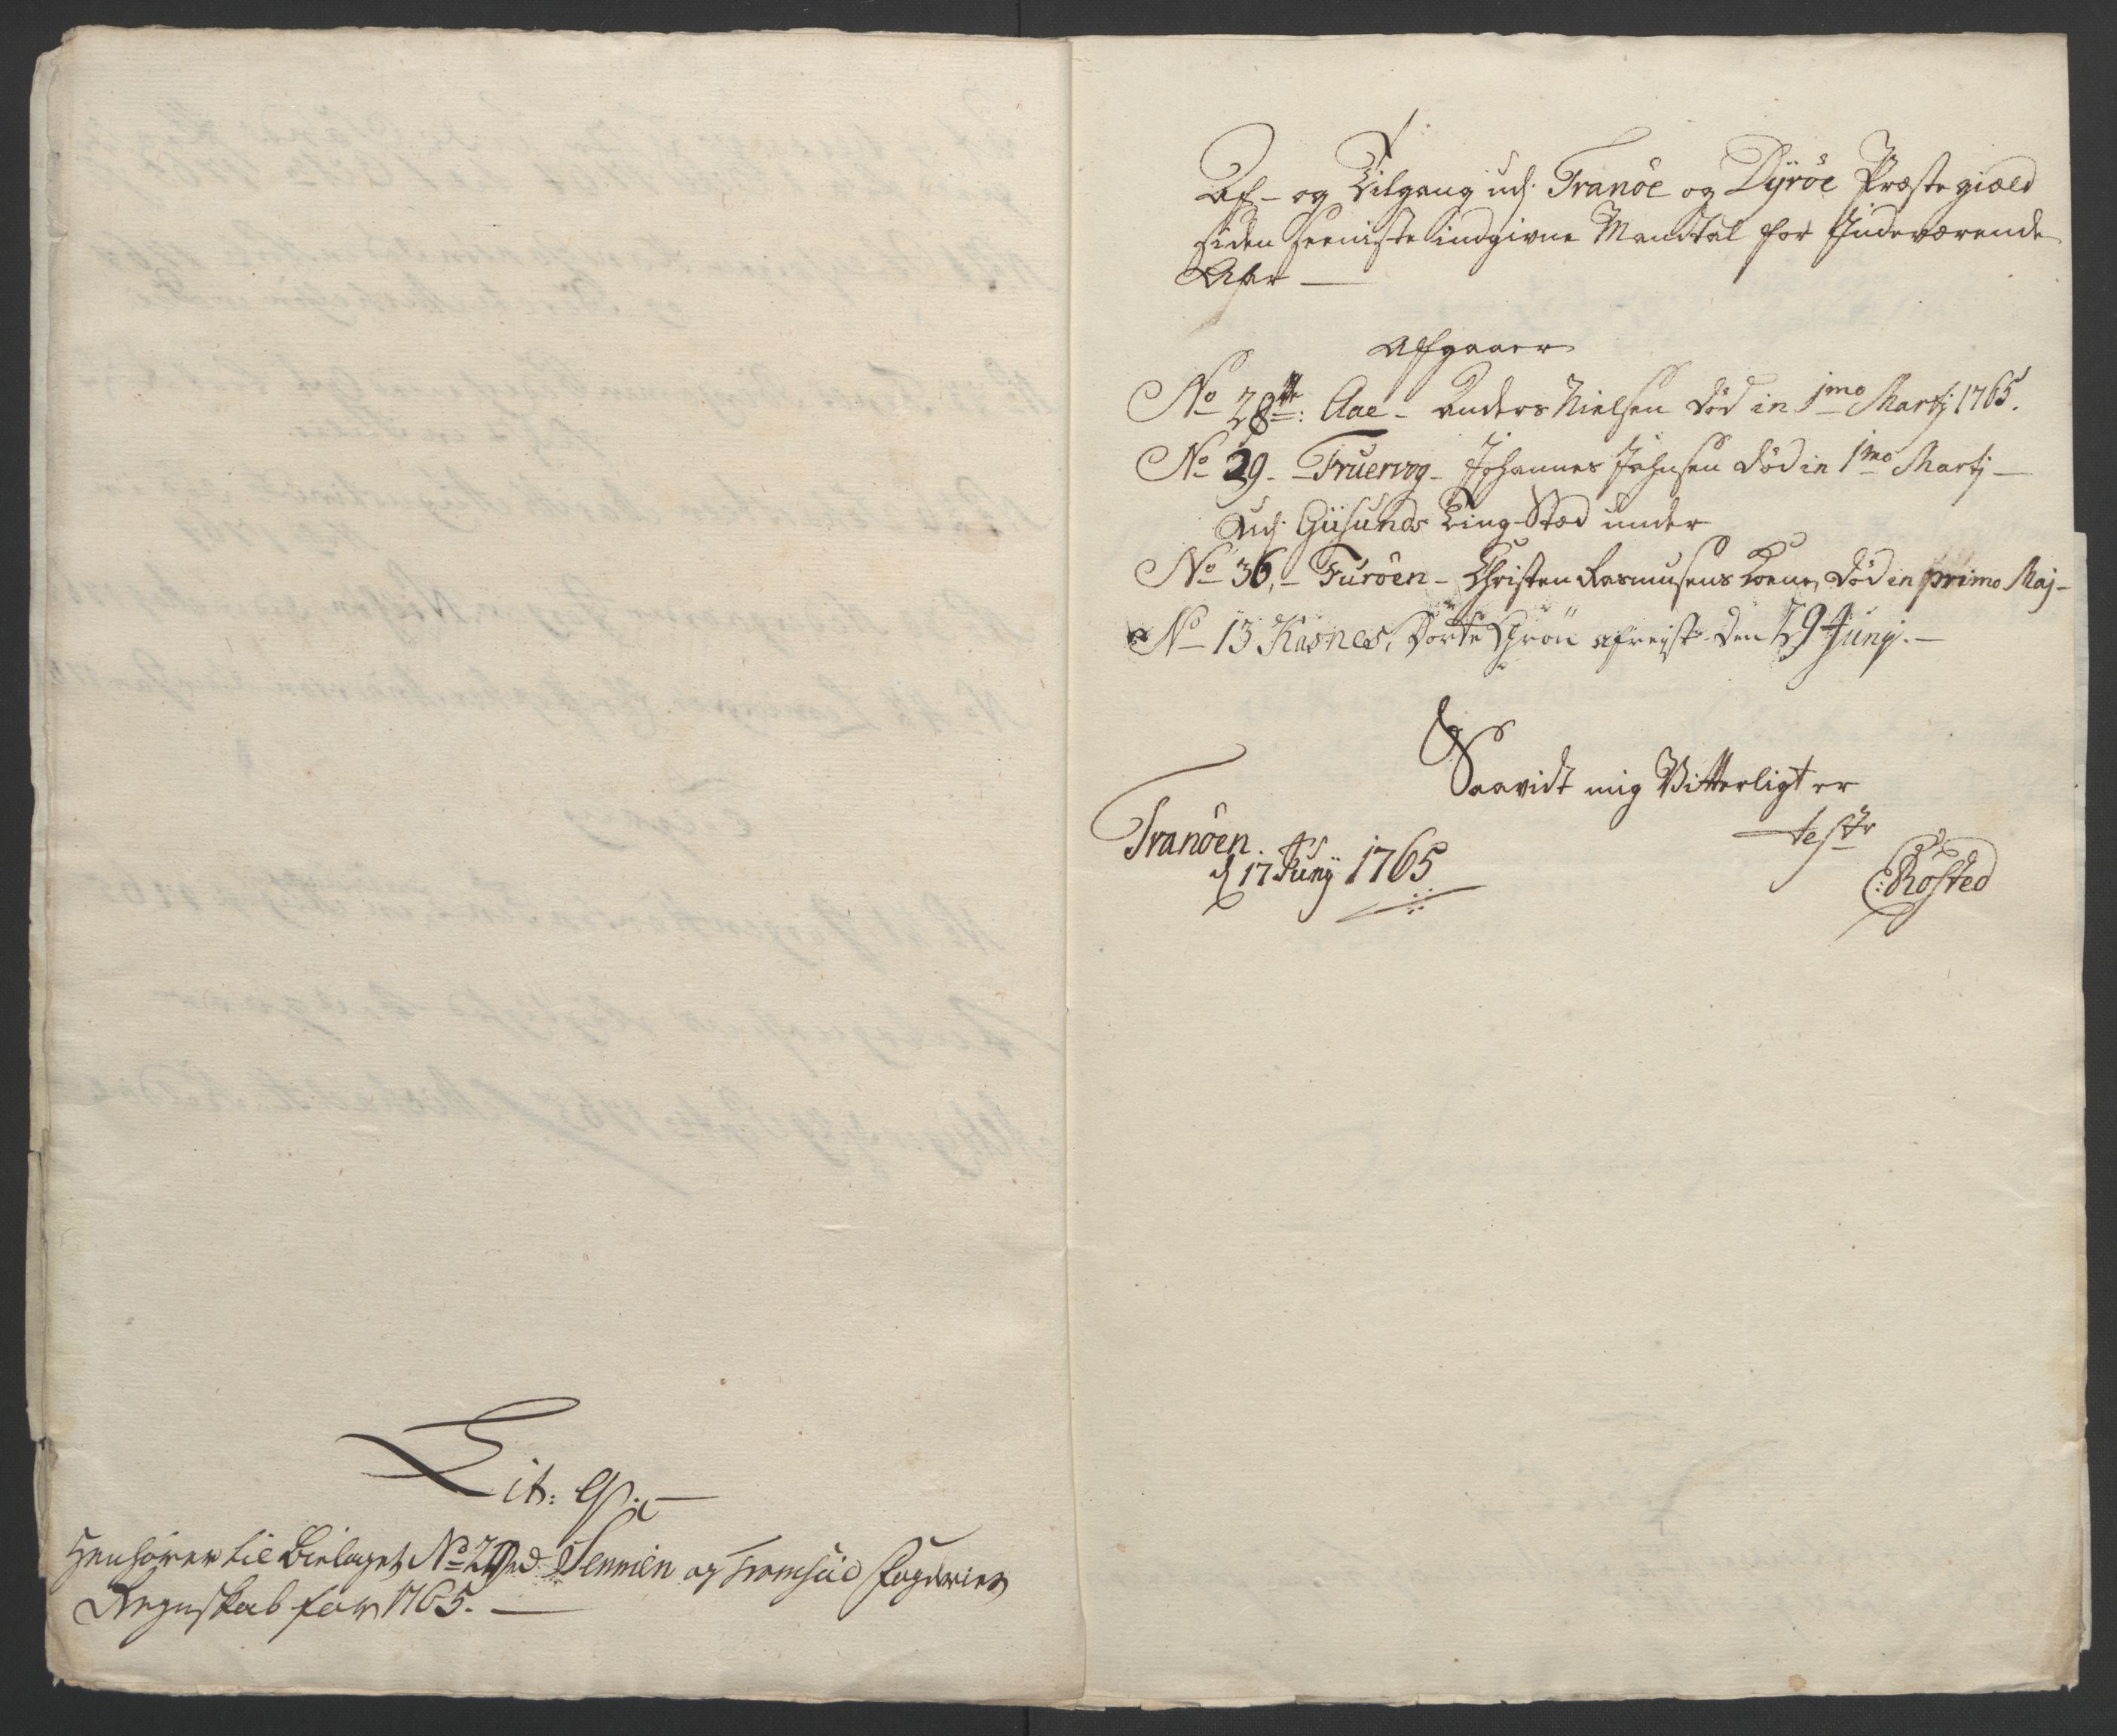 Lit: G:
Henhörer til Bielaget No 29 ved Sennien og Tromsöe Fogderies
Regnskab for 1765.
Af- og Tilgang udj Tranöe og Dyröe Præstegiæld
siden seeniste indgivne Mandtal for Indeværende
Aar
Afgaaer
No 28de: Aae - Anders Nielsen død in 1mo Martj 1765.
No 29 - Truervog - Johannes Johnsen død in 1mo Martj
Udj Giisunds Ting-Stæd under
No 36, - Furöen - Christen Rasmusens Kone, død in primo Maj-
No 13 Kasnes, Dorte Grön afreiste den 29 Junj.
Saavidt mig Vitterligt er
test:
Tranöen.
d 17 Junij 1765
C: Rosted